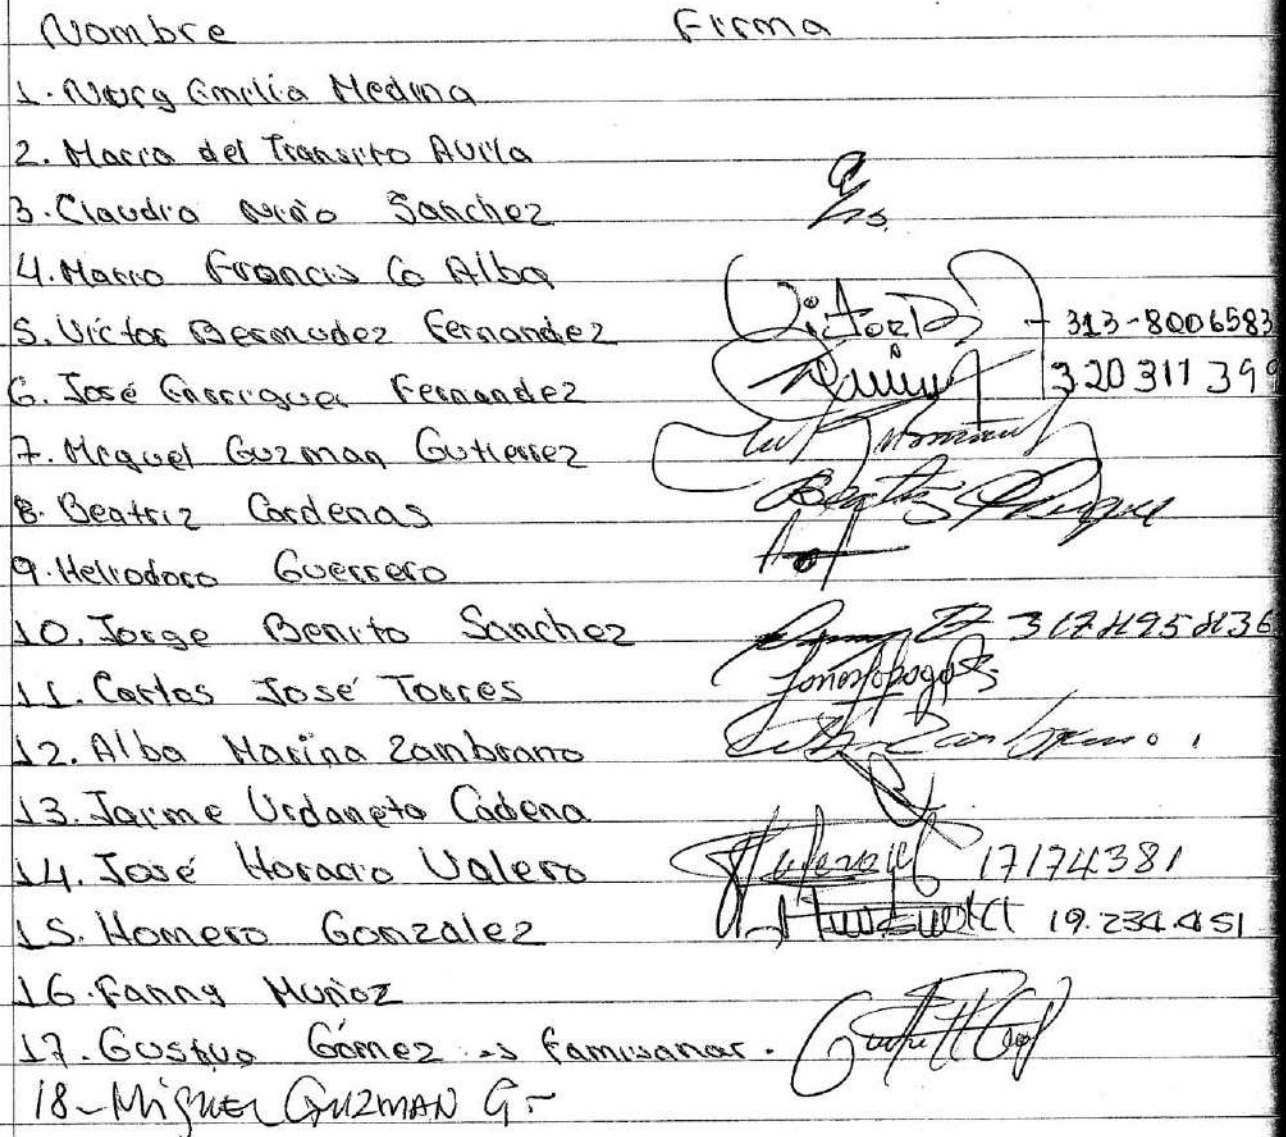 Nombre Firma
1. Nury Emilia Medina
2. Maria del Transito Avila
3. Claudia Niño Sanchez
4. Mario Francisco Alba
5. Victor Bermudez Fernandez - 313-8006583
6. José Enrrique Fernandez 320 311 399
7. Miguel Guzman Gutierrez
8. Beatriz Cardenas Beatriz
9. Heliodoro Guerrero
10. Jorge Benito Sanchez 3174954136
11. Carlos José Torres
12. Alba Marina Zambrano Alba Zambrano
13. Jaime Urdaneta Cadena
14. José Horacio Valero 17174381
15. Homero Gonzalez 19.234.451
16. Fanny Muñoz
17. Gustvo Gómez famisanar.
18- Miguel GUZMAN G-